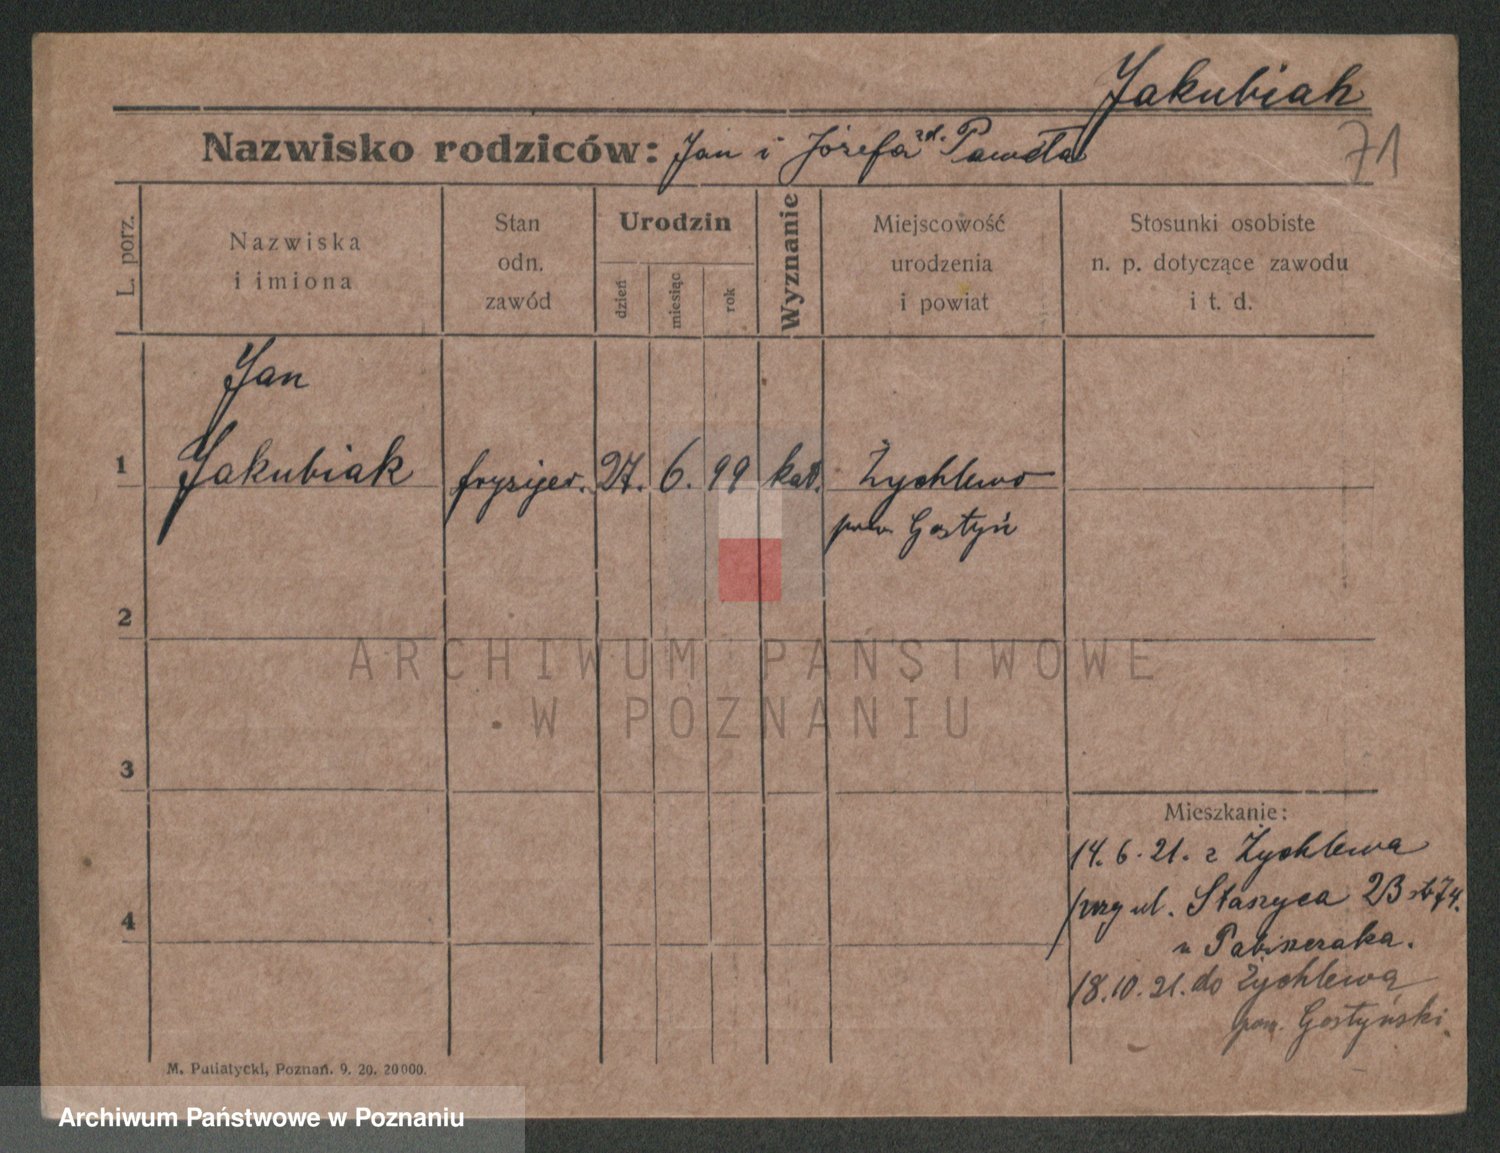 Jakubiak
71
Nazwisko rodziców: Jan i Józefa zd. Pawela
L. porz.
Nazwiska
i imiona
Stan
odn.
zawód
Urodzin
dzień
miesiąc
rok
Wyznanie
Miejscowość
urodzenia
i powiat
Stosunki osobiste
n. p. dotyczące zawodu
i t. d.
Jan
1 Jakubiak fryzjer. 27. 6. 99 kat. Żychlewo
pow. Gostyń
2
3
4
Mieszkanie:
14. 6. 21. z Żychlewa
przy ul. Staszyca 23
u
18. 10. 21. do Żychlewa
pow. Gostyński.
M. Putiatycki, Poznań. 9. 20. 20000.
ARCHIWUM PAŃSTWOWE
W POZNANIU
Archiwum Państwowe w Poznaniu